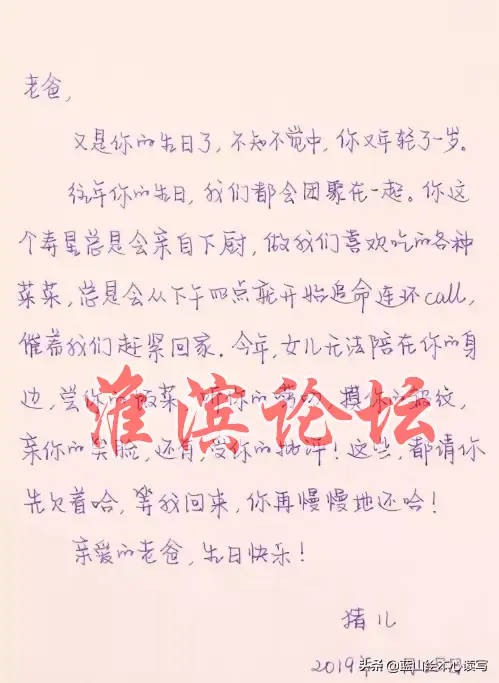 老爸，
又是你的生日了，不知不觉中，你又年轻了一岁。
往年你的生日，我们都会团聚在一起。你这
个寿星总是会亲自下厨，做我们喜欢吃的各种
菜菜，总是会从下午四点就开始追命连环call，
催着我们赶紧回家。今年，女儿无法陪在你的身
边，尝你的饭菜，听你的，摸你的纹，
亲你的笑脸，还有，受你的批评！这些，都请你
先欠着哈，等我回来，你再慢慢地还哈！
亲爱的老爸，生日快乐！
猪儿
2019年
淮滨论坛
头条 @蓝山绘本心读写